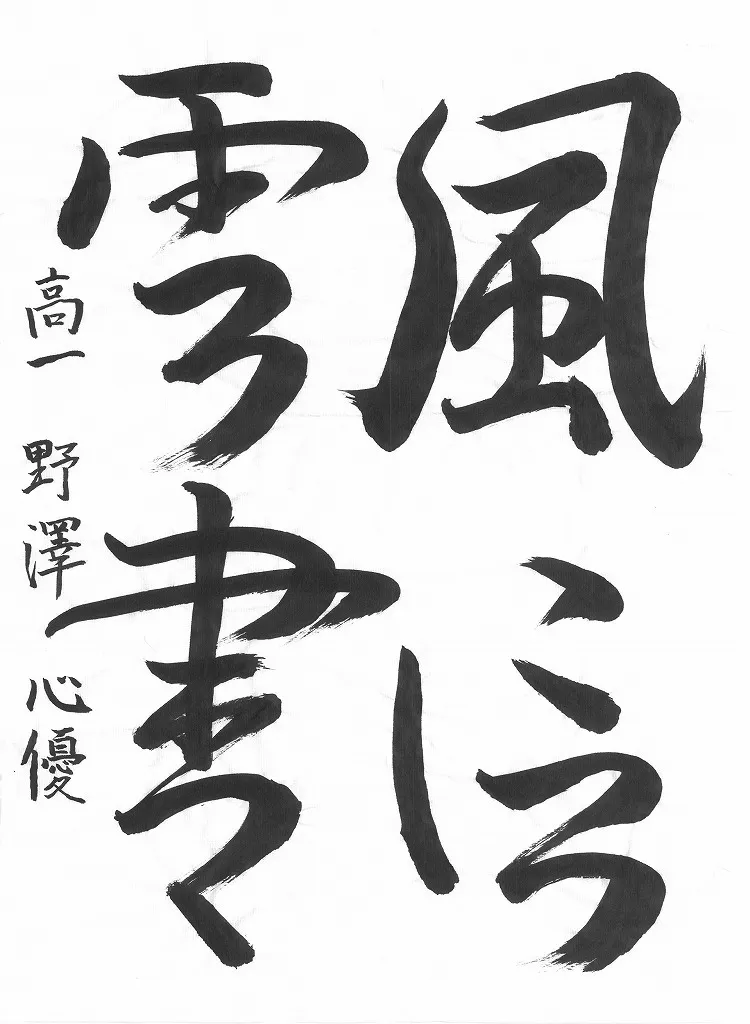 風信
雲書
高一 野澤 心優